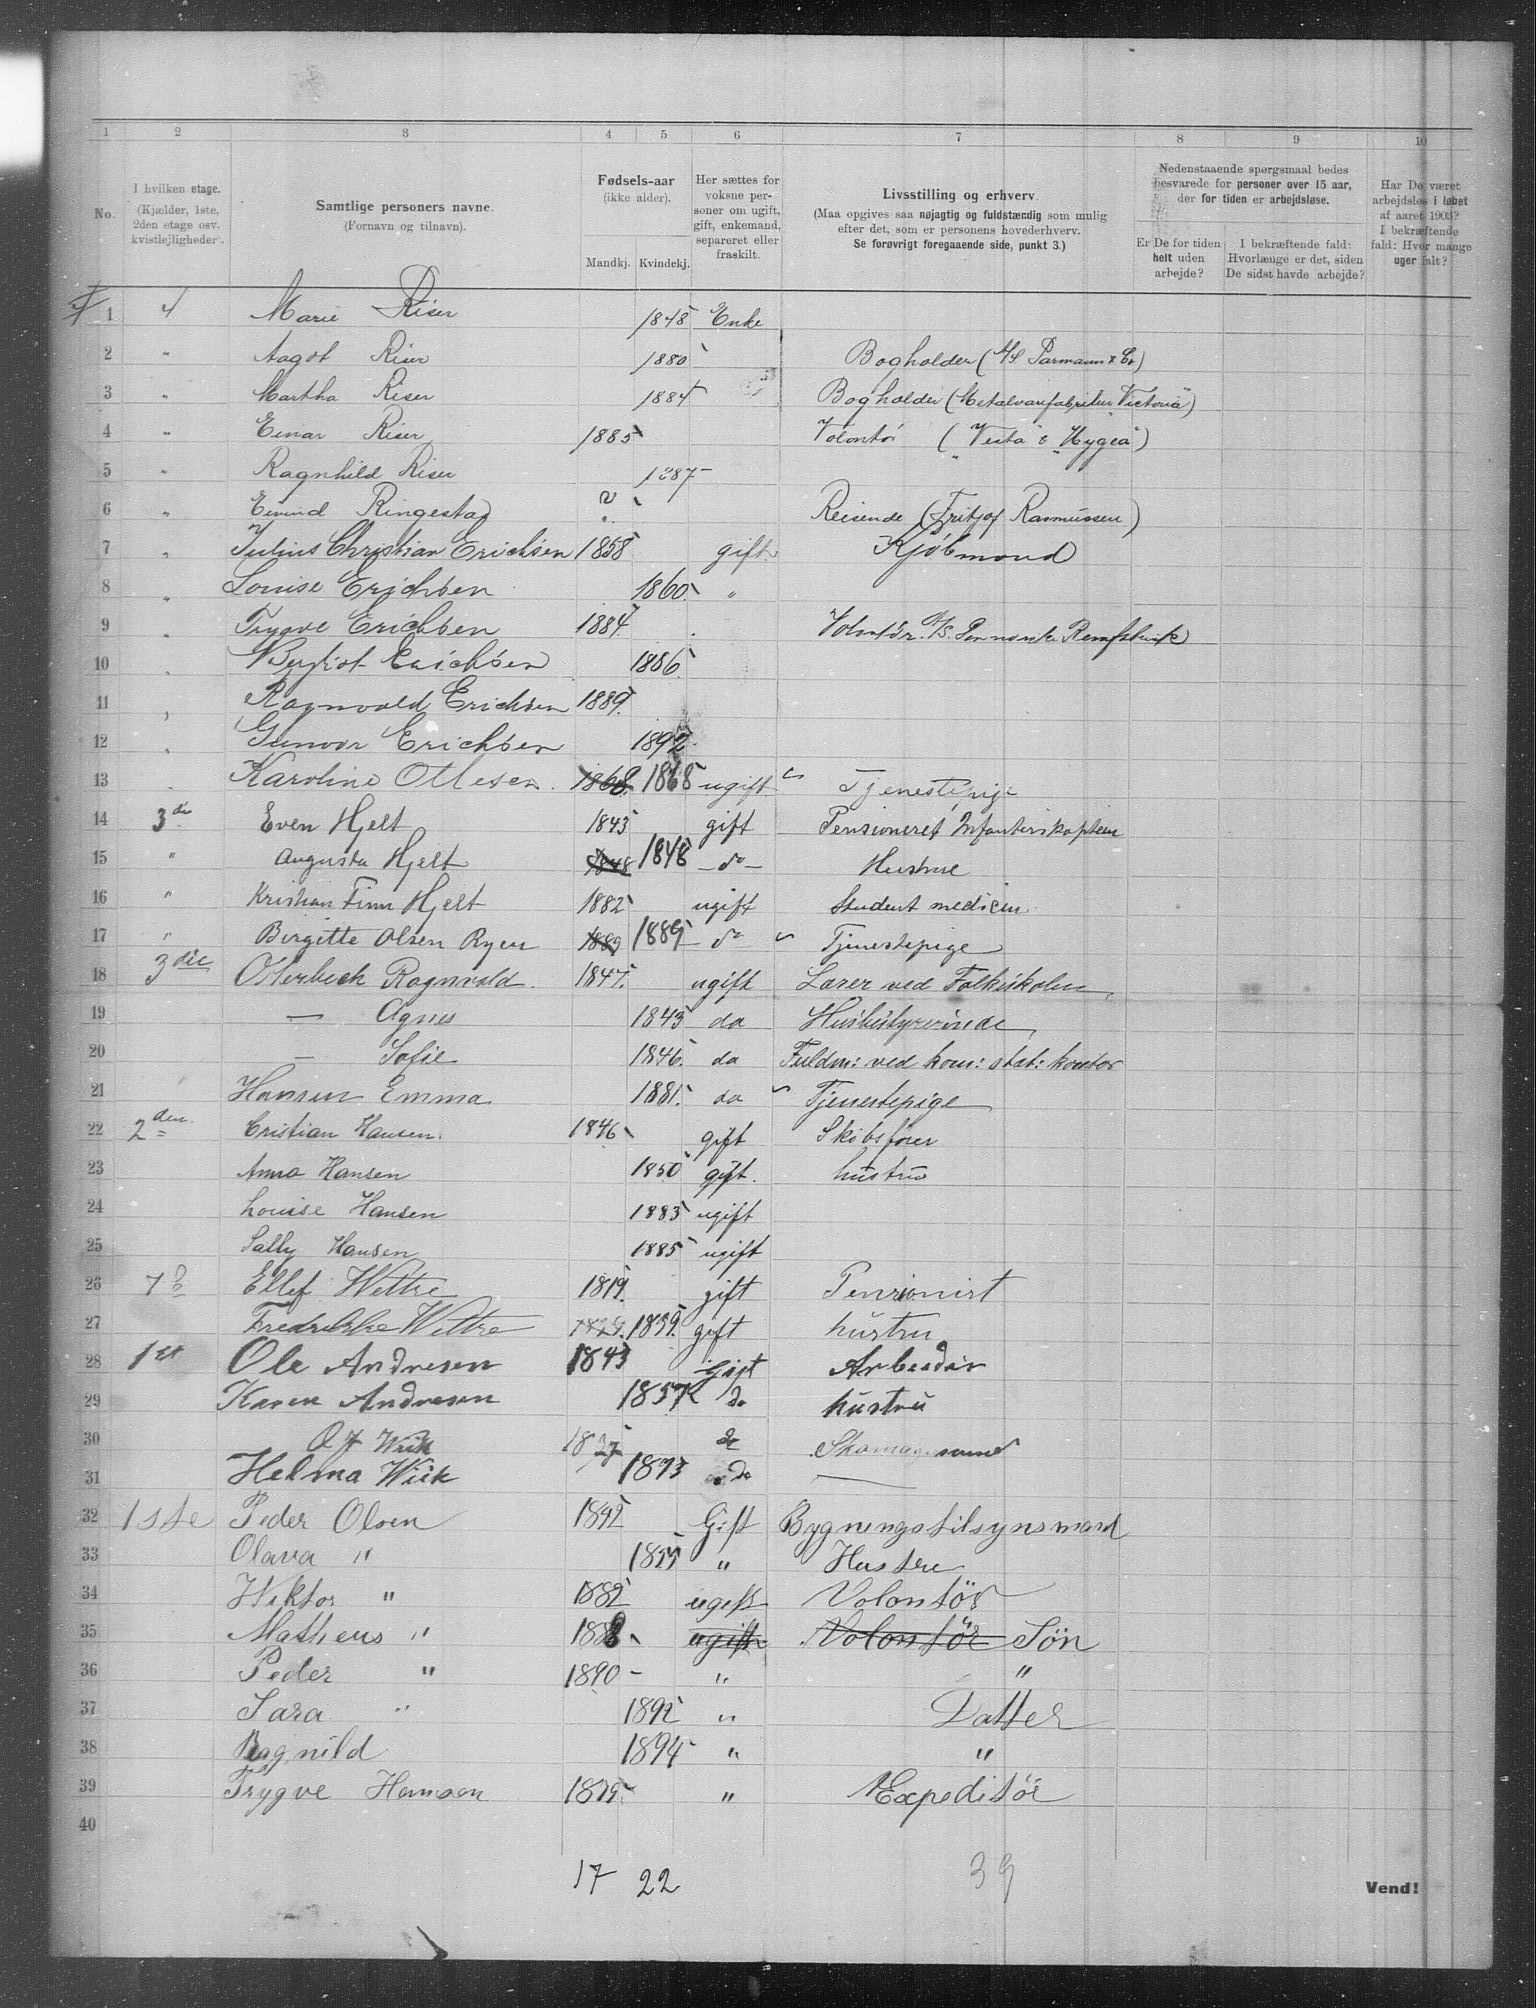 1 2 3 4 5 6 7 8 9 10
No.
I hvilken etage. (Kjælder, 1ste, 2den etage osv. kvistlejligheder).
Samtlige personers navne. (Fornavn og tilnavn).
Fødsels-aar (ikke alder).
Mandkj. Kvindekj.
Her sættes for voksne personer om ugift, gift, enkemand, separeret eller fraskilt.
Livsstilling og erhverv.
(Maa opgives saa nøjagtig og fuldstændig som mulig efter det, som er personens hovederhverv. Se forøvrigt foregaaende side, punkt 3.)
Nedenstaaende spørgsmaal bedes besvarede for personer over 15 aar, der for tiden er arbejdsløse.
Er De for tiden helt uden arbejde?
I bekræftende fald: Hvorlænge er det, siden De sidst havde arbejde?
Har De været arbejdsløs i løbet af aaret 1903? I bekræftende fald: Hvor mange uger ialt?
1 4 Marie Riser 1848 Enke
2 " Aagot Riser 1880 Bogholder (A/S Parmann & Co)
3 " Martha Riser 1884 Bogholder (Metalvarefabriken "Victoria")
4 " Einar Riser 1885 Volontør ("Vesta" & "Hygea")
5 " Ragnhild Riser 1887
6 " Eivind Ringestad Reisende (Fritjof Rasmussen)
7 " Julius Christian Erichsen 1858 gift Kjøbmand
8 " Louise Erichsen 1860. "
9 " Trygve Erichsen 1884. Volontør. A/S.
10 " Bergliot Erichsen 1886.
11 " Ragnvald Erichsen 1889.
12 " Gunvor Erichsen 1892.
13 " Karoline Ottesen. 1868. 1868 ugift Tjenestepige
14 3die Even Hjelt 1843 gift Pensioneret Infanterikaptein
15 " Augusta Hjelt 1848 1848 - do - Hustrue
16 " Kristian Finn Hjelt 1882 ugift Student medicin.
17 " Birgitte Olsen Ryen 1889 1889 - do Tjenestepige
18 3die Osterbech Ragnvald. 1847. ugift Lærer ved Folkeskolen,
19 — Agnes 1843 da Husbestyrerinde,
20 — Sofie 1846. da Fuldm: ved kom: stat: kontor
21 Hansen Emma 1881. da Tjenestepige
22 2den Cristian Hansen. 1846 gift Skibsfører
23 Anna Hansen 1850 gift. hustru
24 Louise Hansen 1883 ugift
25 Sally Hansen 1885 ugift
26 Ellef Wettre 1819. gift Pensionist
27 Fredrikke Wettre 1859. gift hustru
28 1ste Ole Andresen 1843 Gigt Arbeider
29 Karen Andresen 1857 do hustru
30 Wiik 1837 do
31 Helma Wiik 1873 do —
32 1ste Peder Olsen 1842 Gift Bygningstilsynsmand
33 Olava " 1855 " Hustru
34 Wiktor " 1882 ugift Volontör
35 Matheus " 1888 ugift Volontör Sön
36 Peder " 1890 " "
37 Sara " 1892 " Datter
38 Ragnild 1894 " "
39 Trygve Hanson 1879. " Expeditör
40
17 22 39
Vend!